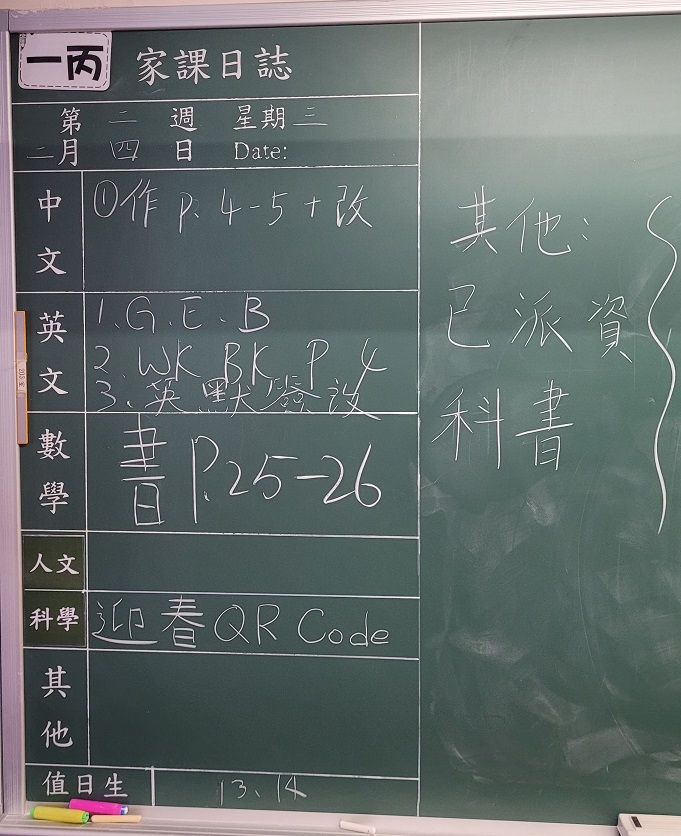 一丙 家課日誌
第 二 週 星期三
二月 四 日 Date:
中文 ①作 p. 4-5 + 改
英文 1. G.E.B
2. WK BK P. 4
3. 英默簽改
數學 書 P.25-26
人文
科學 迎春 QR Code
其他
值日生 13、14
其他：
已派資
科書